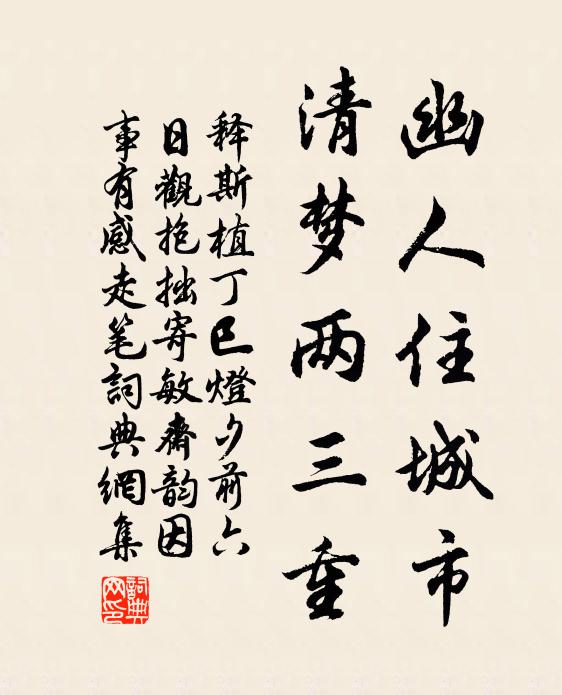 幽人住城市
清梦两三重
释斯植丁巳燈夕前六
日觀抱拙寄敏齋韵因
事有感走笔詞典網集
詞典网印